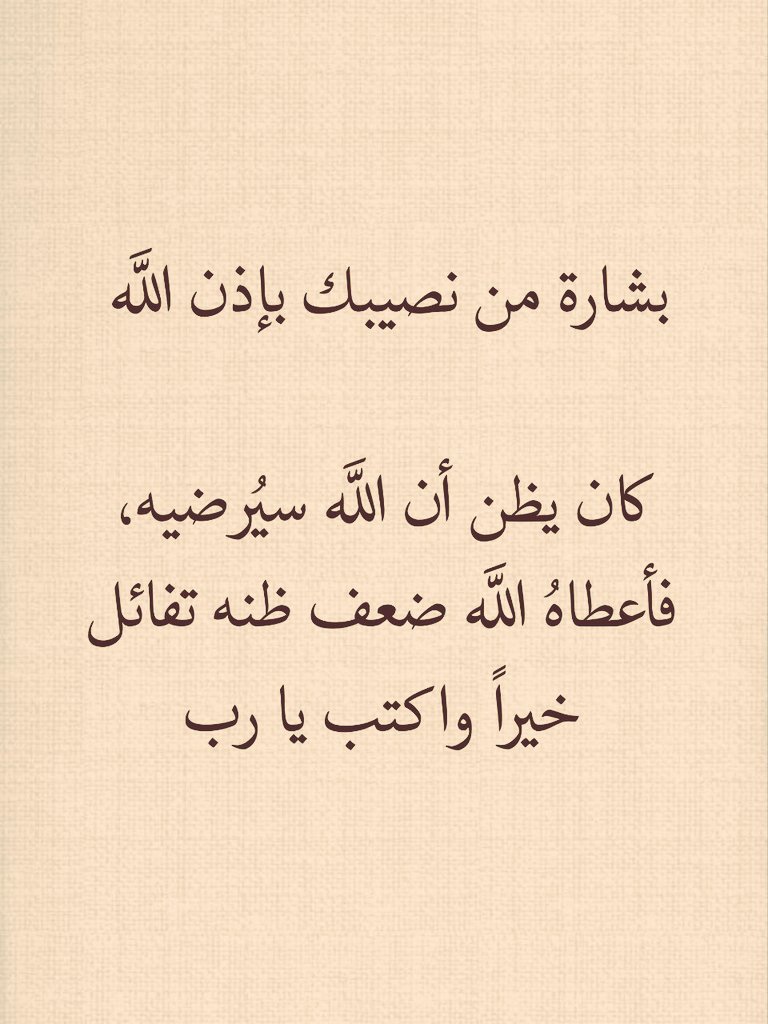 بشارة من نصيبك بإذن اللَّه
كان يظن أن اللَّه سيُرضيه،
فأعطاهُ اللَّه ضعف ظنه تفائل
خيراً واكتب يا رب